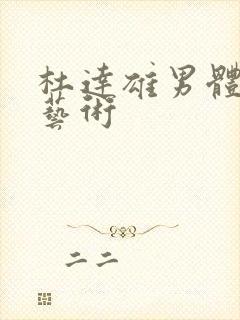 杜達雄男體
藝術
二二